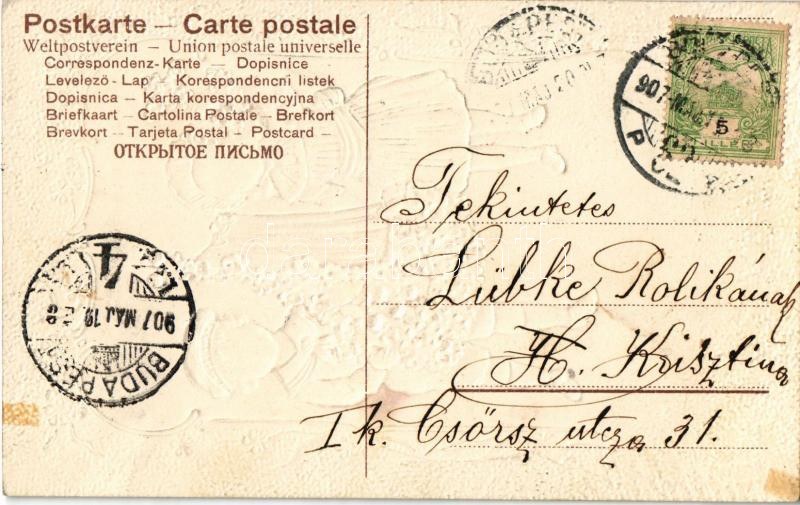 Postkarte – Carte postale
Weltpostverein – Union postale universelle
Correspondenz-Karte – Dopisnice
Levelező-Lap – Korespondencni listek
Dopisnica – Karta korespondencyjna
Briefkaart – Cartolina Postale – Brefkort
Brevkort – Tarjeta Postal – Postcard –
ОТКРЫТОЕ ПИСЬМО
BUDAPEST
5
Tekintetes
Lübke Rolikának
H. Krisztina
I k. Csörsz utcza 31.
4
907 MÁJ. 19.
BUDAPEST